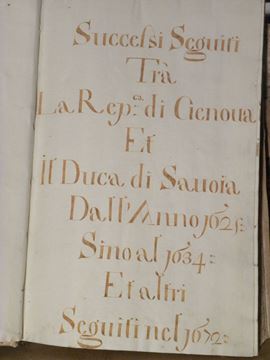 Successi Seguiti
Trà
La Rep.ca di Genoua
Et
il Duca di Sauoia
Dall'Anno 1625:
Sino al 1634:
Et altri
Seguiti nel 1672: